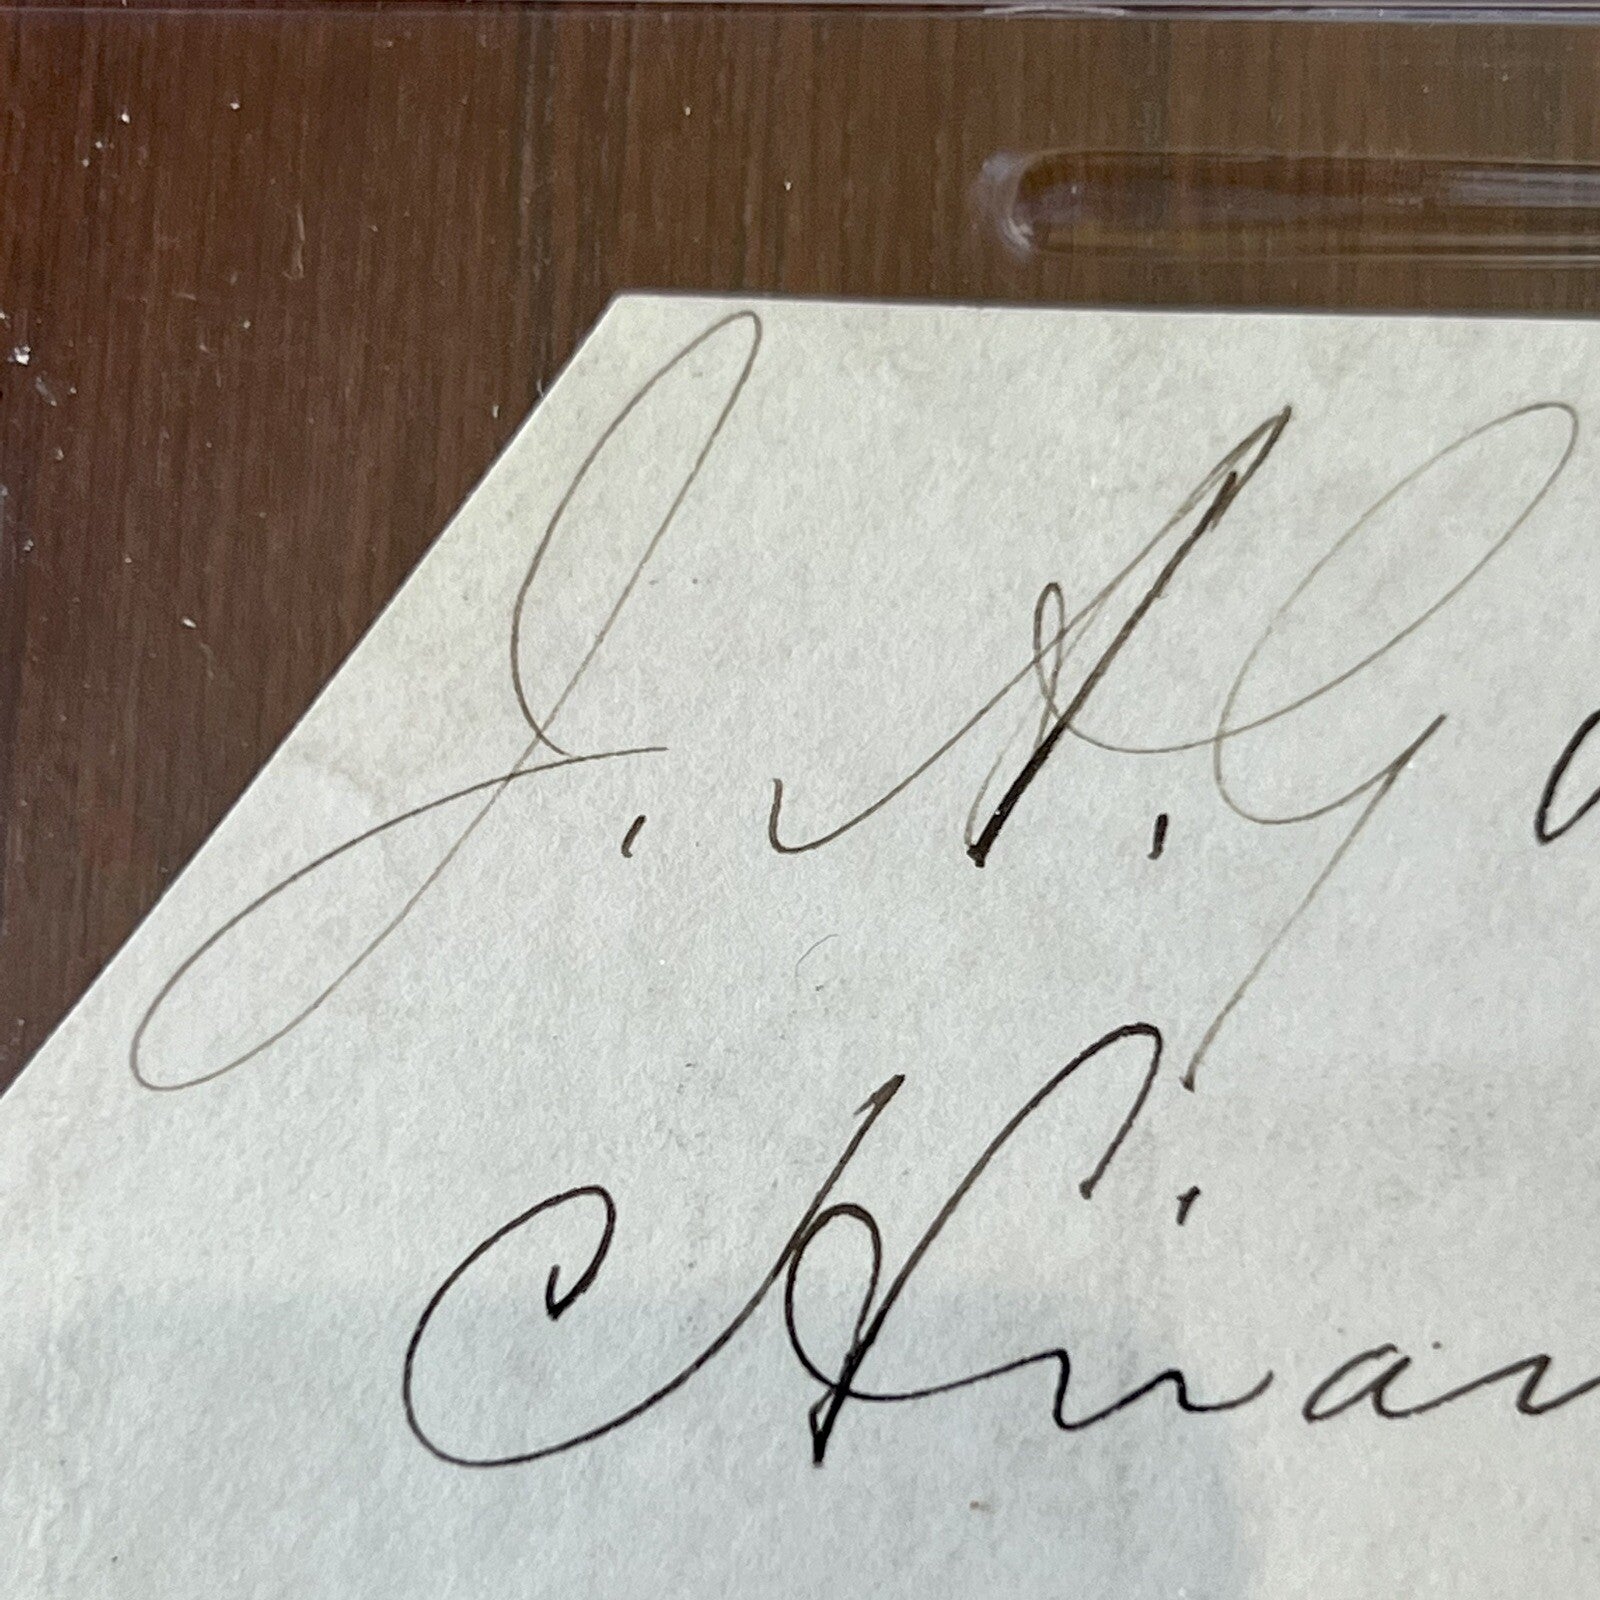 J. A. Ga
Hiram